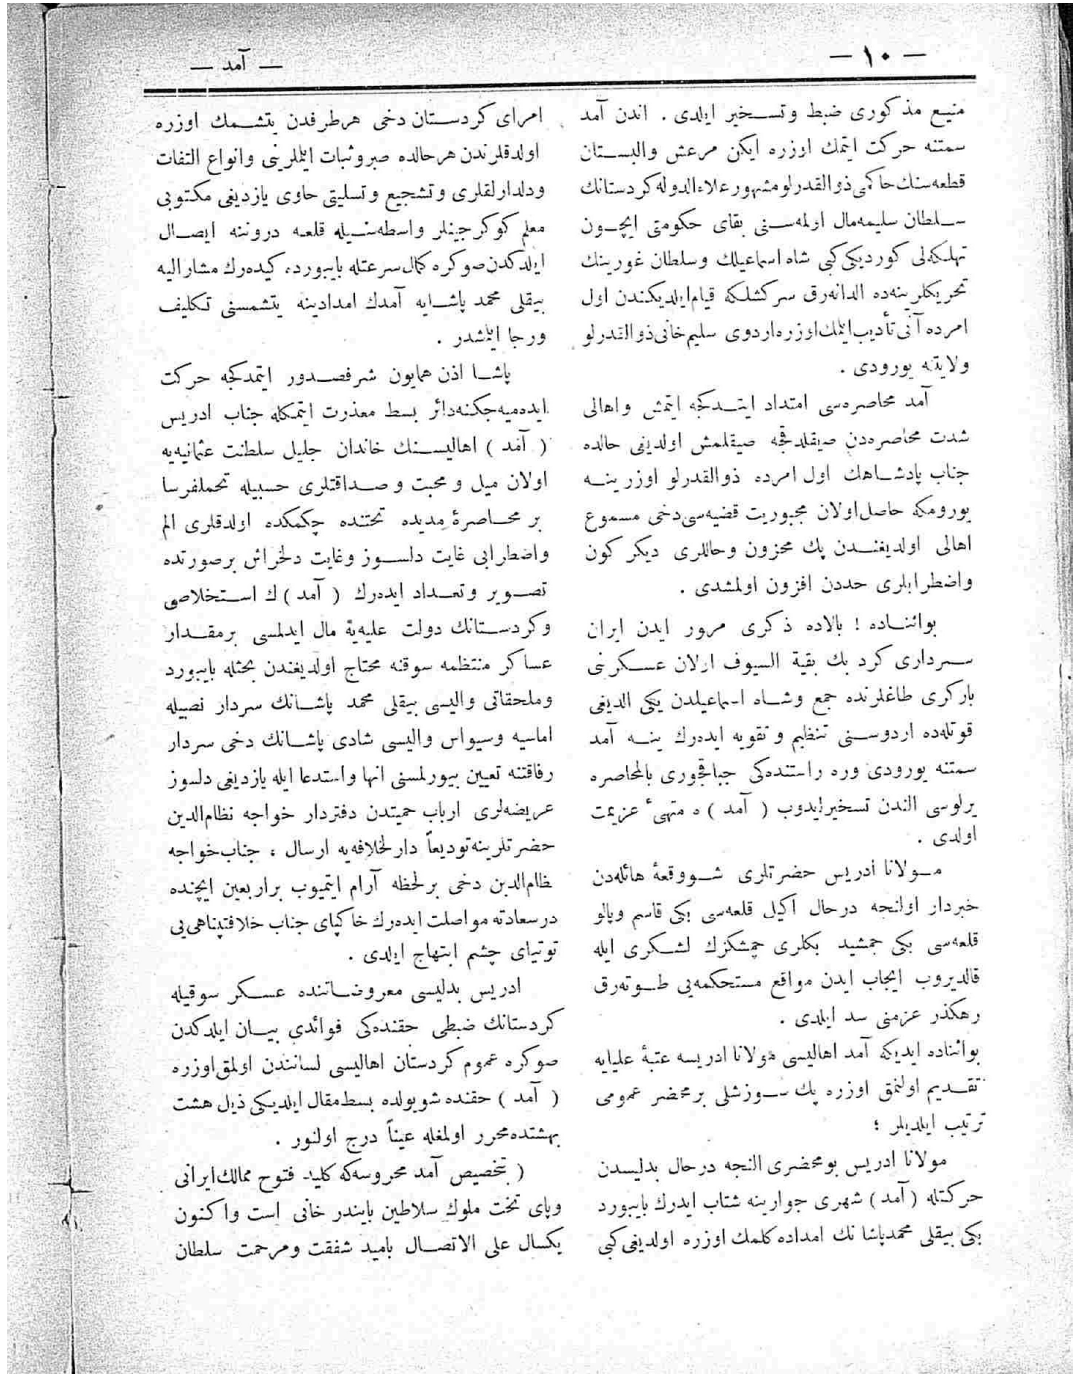 — ١٠ —
— آمد —
منیع مذکوری ضبط وتسخیر ایلدی . اندن آمد
سمتنه حرکت ایتمك اوزره ایکن مرعش والبستان
قطعه‌سنك حاکمی ذوالقدرلو مشهور علاءالدوله کردستانك
سلطان سلیمه‌مال اولمه‌سنی بقای حکومتی ایچون
تهلکه‌لی کوردیکی کبی شاه اسماعیلك وسلطان غورینك
تحریکلرینه‌ده الدانه‌رق سرکشلکه قیام ایلدیکندن اول
امرده آنی تأدیب ایتمك اوزره اردوی سلیم خانی ذوالقدرلو
ولایتنه یورودی .
آمد محاصره‌سی امتداد ایتدکجه ایتمش واهالی
شدت محاصره‌دن صیقلدقجه صیقلمش اولدیغی حالده
جناب پادشاهك اول امرده ذوالقدرلو اوزرینه
یورومکه حاصل اولان مجبوریت قضیه‌سی دخی مسموع
اهالی اولدیغندن پك محزون وحاللری دیکر کون
واضطرابلری حددن افزون اولمشدی .
بواثناده ! بالاده ذکری مرور ایدن ایران
سرداری کرد بك بقیة السیوف اولان عسکرنی
بارکری طاغلرنده جمع وشاه اسماعیلدن یکی الدیغی
قوتله‌ده اردوسنی تنظیم و تقویه ایده‌رك ینه آمد
سمتنه یورودی وره راستنده‌کی جباقجوری بالمحاصره
یرلوسی الندن تسخیر ایدوب ( آمد ) ه منتهی‌ٔ عزیمت
اولدی .
مولانا ادریس حضرتلری شو وقعهٔ هائله‌دن
خبردار اولنجه درحال اکیل قلعه‌سی بکی قاسم وپالو
قلعه‌سی بکی جمشید بکلری چمشکزك لشکری ایله
قالدیروب ایجاب ایدن مواقع مستحکمه‌یی طوته‌رق
رهکذر عزمنی سد ایلدی .
بواثناده ایدیکه آمد اهالیسی مولانا ادریسه عتبهٔ علیایه
تقدیم اولنمق اوزره پك سوزشلی برمحضر عمومی
ترتیب ایلدیلر ؛
مولانا ادریس بومحضری النجه درحال بدلیسدن
حرکتله ( آمد ) شهری جوارینه شتاب ایدرك بایبورد
بکی بیقلی محمدپاشا نك امداده کلمك اوزره اولدیغی کبی
امرای کردستان دخی هرطرفدن یتشمك اوزره
اولدقلرندن هرحالده صبروثبات ایتملرینی وانواع التفات
ودلدارلقلری وتشجیع وتسلیتی حاوی یازدیغی مکتوبی
معلم کوکرجینلر واسطه‌سیله قلعه درونه ایصال
ایلدکدن صوکره کمال سرعتله بایبورده کیده‌رك مشارالیه
بیقلی محمد پاشایه آمدك امدادینه یتشمسنی تکلیف
ورجا ایتمشدر .
پاشا اذن همایون شرفصدور ایتمدکجه حرکت
ایده‌میه‌جکنه‌دائر بسط معذرت ایتمکله جناب ادریس
( آمد ) اهالیسنك خاندان جلیل سلطنت عثمانیه‌یه
اولان میل و محبت و صداقتلری حسبیله تحملفرسا
بر محاصرهٔ مدیده تحتنده چکمکده اولدقلری الم
واضطرابی غایت دلسوز وغایت دلخراش برصورتده
تصویر وتعداد ایده‌رك ( آمد ) ك استخلاصی
وکردستانك دولت علیه‌یهٔ مال ایدلمسی برمقدار
عساکر منتظمه سوقنه محتاج اولدیغندن بحثله بایبورد
وملحقاتی والیسی بیقلی محمد پاشانك سردار نصبیله
اماسیه وسیواس والیسی شادی پاشانك دخی سردار
رفاقتنه تعیین بیورلمسنی انها واستدعا ایله یازدیغی دلسوز
عریضه‌لری ارباب حمیتدن دفتردار خواجه نظام‌الدین
حضرتلرینه تودیعاً دارالخلافه‌یه ارسال ، جناب خواجه
نظام‌الدین دخی برلحظه آرام ایتمیوب براربعین ایچنده
درسعادته مواصلت ایده‌رك خاکپای جناب خلافتپناهی‌یی
توتیای چشم ابتهاج ایلدی .
ادریس بدلیسی معروضاتنده عسکر سوقیله
کردستانك ضبطی حقنده‌کی فوائدی بیان ایلدکدن
صوکره عموم کردستان اهالیسی لسانندن اولمق اوزره
( آمد ) حقنده شویولده بسط‌مقال ایلدیکی ذیل هشت
بهشتده‌محرر اولمغله عیناً درج اولنور .
( بتخصیص آمد محروسه‌که کلید فتوح ممالك ایرانی
وپای تخت ملوك سلاطین بایندر خانی است واکنون
یکسال علی الاتصال بامید شفقت ومرحمت سلطان